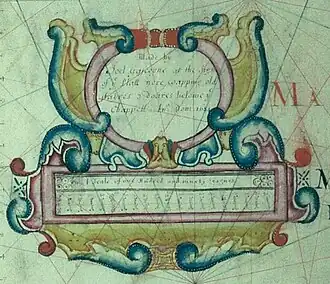 Made by
Joel Gascoyne at the Signe
of yͤ Platt nere Wapping old
Stayres 3 doares below yͤ
Chappell. Anᵒ Dom:
A Scale of one Hundred and ninety
MA
M